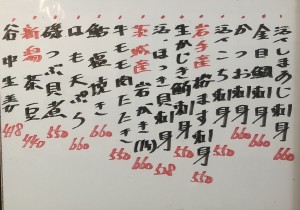 活しまあじ刺身 660
金目鯛刺身 660
かつお刺身 660
活こち刺身 660
岩手産桜ます刺身 550
生かじき鮪刺身 550
活ほっき貝刺身 528
茨城産岩がき(1ヶ) 660
牛もも肉たたき 550
鮎塩焼き 660
はも天ぷら
磯つぶ貝煮 550
新潟茶豆 440
谷中生姜 418